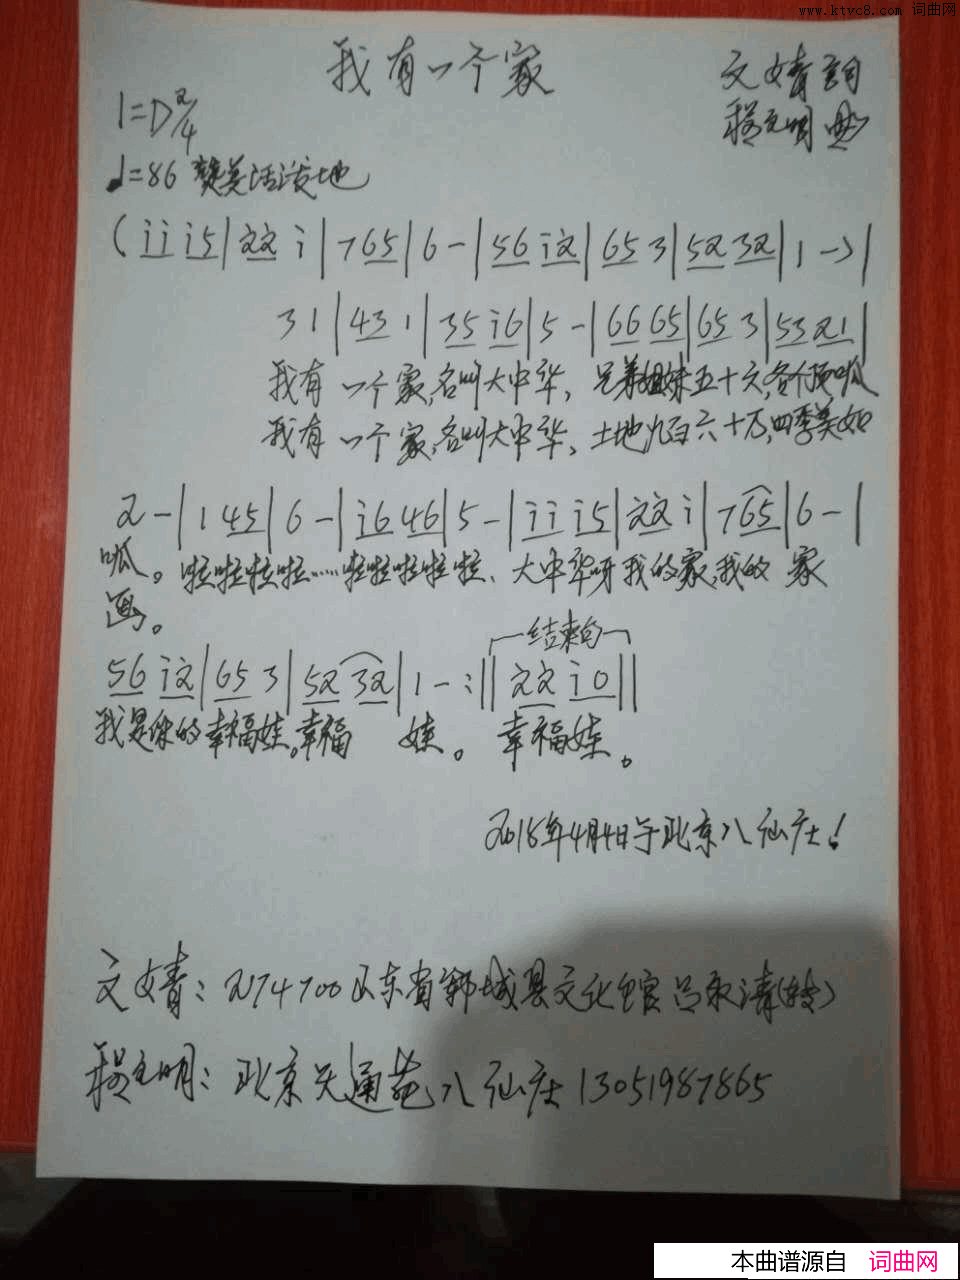 www.ktvc8.com 词曲网
我有一个家
文婧詞
程元明曲
1=D 2/4
♩=86 赞美活泼地
(i i i 5|2 2 i|7 6 5|6 -|5 6 i 2|6 5 3|5 2 3 2|1 -)|
3 1|4 3 1|3 5 i 6|5 -|6 6 6 5|6 5 3|5 3 2 1|
我有一个家,名叫大中华,兄弟姐妹五十六,各个顶呱
我有一个家,名叫大中华,土地九百六十万,四季美如
2 -|1 4 5|6 -|i 6 4 6|5 -|i i i 5|2 2 i|7 6 5|6 -|
呱。啦啦啦啦……啦啦啦啦啦、大中华呀我的家,我的家
画。
结束句
5 6 i 2|6 5 3|5 2 3 2|1 - :||2 2 i 0||
我是你的幸福娃,幸福娃。幸福娃。
2018年4月4日于北京八仙庄!
文婧:274700山东省郓城县文化馆吕永清(转)
程元明:北京天通苑八仙庄13051987865
本曲谱源自 词曲网